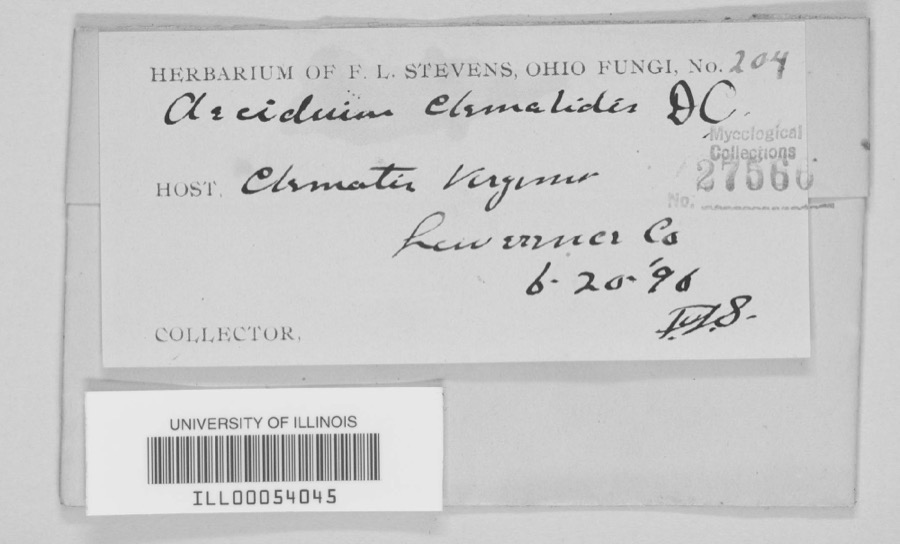 HERBARIUM OF F. L. STEVENS, OHIO FUNGI, No. 204
Aecidium Clematidis DC.
Mycological
Collections
No. 27566
HOST, Clematis Virginia
Lawrence Co
6-20-'96
COLLECTOR,
UNIVERSITY OF ILLINOIS
ILL00054045